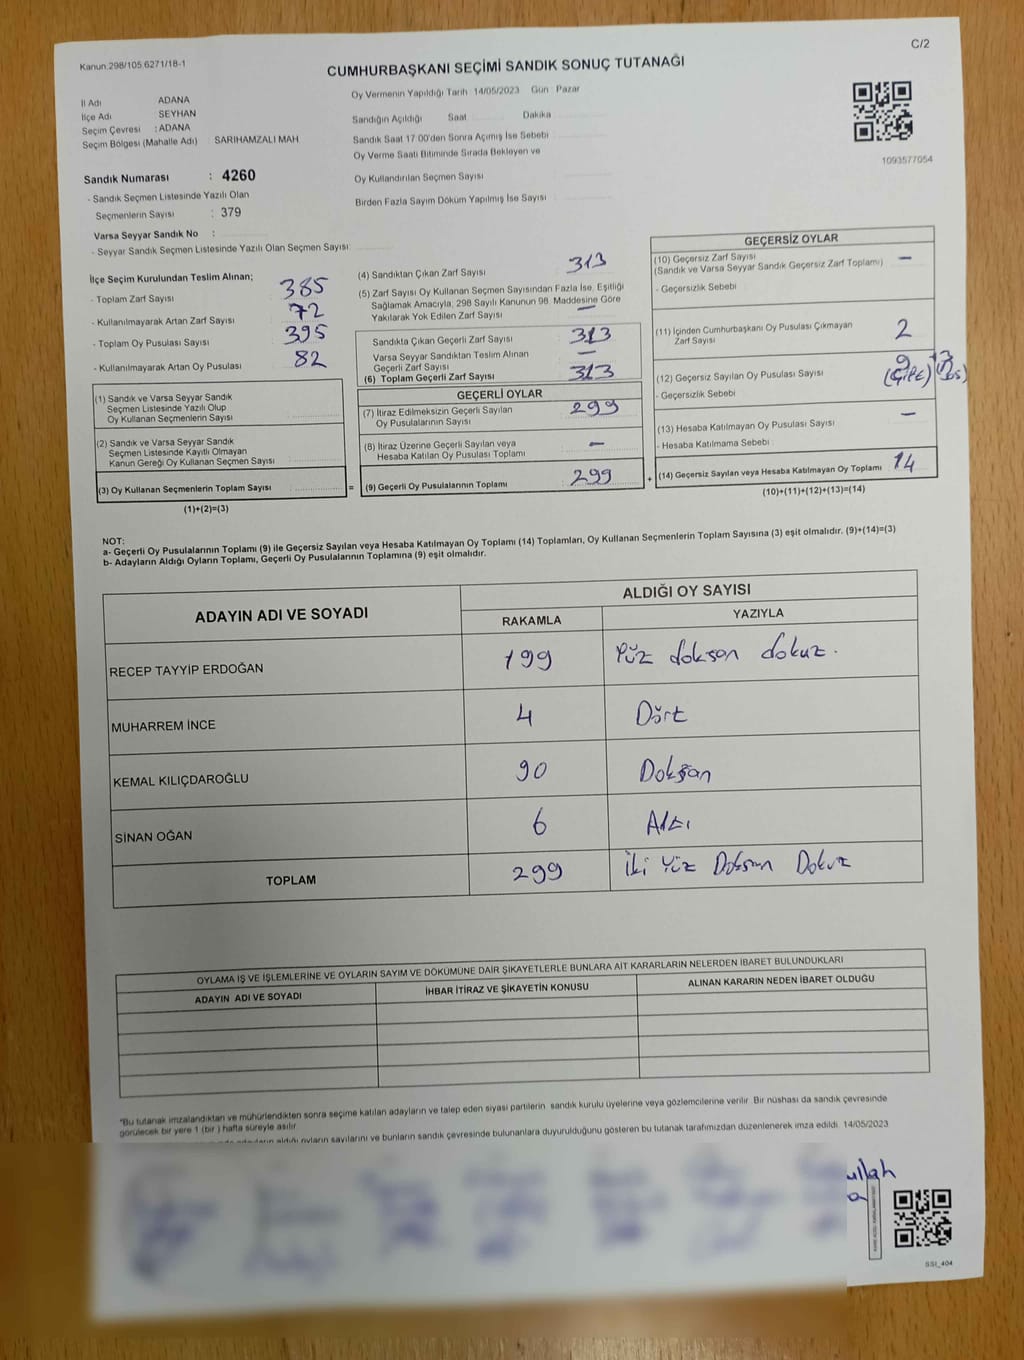 C/2
Kanun.298/105.6271/18-1
CUMHURBAŞKANI SEÇİMİ SANDIK SONUÇ TUTANAĞI
İl Adı ADANA
İlçe Adı SEYHAN
Seçim Çevresi : ADANA
Seçim Bölgesi (Mahalle Adı) SARIHAMZALI MAH
Sandık Numarası : 4260
- Sandık Seçmen Listesinde Yazılı Olan
Seçmenlerin Sayısı : 379
Varsa Seyyar Sandık No :
- Seyyar Sandık Seçmen Listesinde Yazılı Olan Seçmen Sayısı:
Oy Vermenin Yapıldığı Tarih 14/05/2023 Gün Pazar
Sandığın Açıldığı Saat Dakika
Sandık Saat 17:00'den Sonra Açımış İse Sebebi
Oy Verme Saati Bitiminde Sırada Bekleyen ve
Oy Kullandırılan Seçmen Sayısı
Birden Fazla Sayım Döküm Yapılmış İse Sayısı
1093577054
İlçe Seçim Kurulundan Teslim Alınan;
- Toplam Zarf Sayısı 385
- Kullanılmayarak Artan Zarf Sayısı 72
- Toplam Oy Pusulası Sayısı 395
- Kullanılmayarak Artan Oy Pusulası 82
(1) Sandık ve Varsa Seyyar Sandık
Seçmen Listesinde Yazılı Olup
Oy Kullanan Seçmenlerin Sayısı
(2) Sandık ve Varsa Seyyar Sandık
Seçmen Listesinde Kayıtlı Olmayan
Kanun Gereği Oy Kullanan Seçmen Sayısı
(3) Oy Kullanan Seçmenlerin Toplam Sayısı =
(1)+(2)=(3)
(4) Sandıktan Çıkan Zarf Sayısı 313
(5) Zarf Sayısı Oy Kullanan Seçmen Sayısından Fazla İse, Eşitliği
Sağlamak Amacıyla, 298 Sayılı Kanunun 98. Maddesine Göre
Yakılarak Yok Edilen Zarf Sayısı —
Sandıkta Çıkan Geçerli Zarf Sayısı 313
Varsa Seyyar Sandıktan Teslim Alınan
Geçerli Zarf Sayısı —
(6) Toplam Geçerli Zarf Sayısı 313
GEÇERLİ OYLAR
(7) İtiraz Edilmeksizin Geçerli Sayılan
Oy Pusulalarının Sayısı 299
(8) İtiraz Üzerine Geçerli Sayılan veya
Hesaba Katılan Oy Pusulası Toplamı —
(9) Geçerli Oy Pusulalarının Toplamı 299 +
GEÇERSİZ OYLAR
(10) Geçersiz Zarf Sayısı —
(Sandık ve Varsa Seyyar Sandık Geçersiz Zarf Toplamı)
- Geçersizlik Sebebi
(11) İçinden Cumhurbaşkanı Oy Pusulası Çıkmayan
Zarf Sayısı 2
(12) Geçersiz Sayılan Oy Pusulası Sayısı 9 (Çift) 3
- Geçersizlik Sebebi
(13) Hesaba Katılmayan Oy Pusulası Sayısı —
- Hesaba Katılmama Sebebi
(14) Geçersiz Sayılan veya Hesaba Katılmayan Oy Toplamı 14
(10)+(11)+(12)+(13)=(14)
NOT:
a- Geçerli Oy Pusulalarının Toplamı (9) ile Geçersiz Sayılan veya Hesaba Katılmayan Oy Toplamı (14) Toplamları, Oy Kullanan Seçmenlerin Toplam Sayısına (3) eşit olmalıdır. (9)+(14)=(3)
b- Adayların Aldığı Oyların Toplamı, Geçerli Oy Pusulalarının Toplamına (9) eşit olmalıdır.
ADAYIN ADI VE SOYADI ALDIĞI OY SAYISI
RAKAMLA YAZIYLA
RECEP TAYYİP ERDOĞAN 199 Yüz doksan dokuz.
MUHARREM İNCE 4 Dört
KEMAL KILIÇDAROĞLU 90 Doksan
SİNAN OĞAN 6 Altı
TOPLAM 299 İki Yüz Doksan Dokuz
OYLAMA İŞ VE İŞLEMLERİNE VE OYLARIN SAYIM VE DÖKÜMÜNE DAİR ŞİKAYETLERLE BUNLARA AİT KARARLARIN NELERDEN İBARET BULUNDUKLARI
ADAYIN ADI VE SOYADI İHBAR İTİRAZ VE ŞİKAYETİN KONUSU ALINAN KARARIN NEDEN İBARET OLDUĞU
*Bu tutanak imzalandıktan ve mühürlendikten sonra seçime katılan adayların ve talep eden siyasi partilerin sandık kurulu üyelerine veya gözlemcilerine verilir. Bir nüshası da sandık çevresinde
görülecek bir yere 1 (bir) hafta süreyle asılır.
aldığı oyların sayılarını ve bunların sandık çevresinde bulunanlara duyurulduğunu gösteren bu tutanak tarafımızdan düzenlenerek imza edildi. 14/05/2023
ullah
a
SSI_404